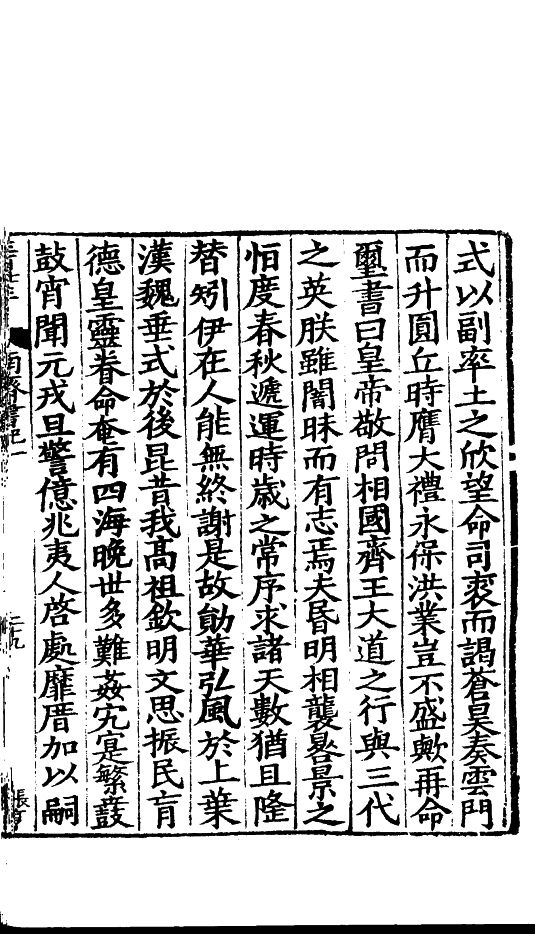 式以副率土之欣望命司裘而謁蒼昊奏雲門
而升圓丘時膺大禮永保洪業豈不盛歟再命
璽書曰皇帝敬問相國齊王大道之行與三代
之英朕雖闇昧而有志焉夫昏明相襲晷景之
恒度春秋遞運時歳之常序求諸天數猶且隆
替矧伊在人能無終謝是故勛華弘風於上葉
漢魏垂式於後昆昔我髙祖欽明文思振民育
德皇靈眷命奄有四海晚世多難姦宄寔繁鼖
鼓宵聞元戎旦警億兆夷人啓處靡厝加以嗣
南齊書紀一
二十九